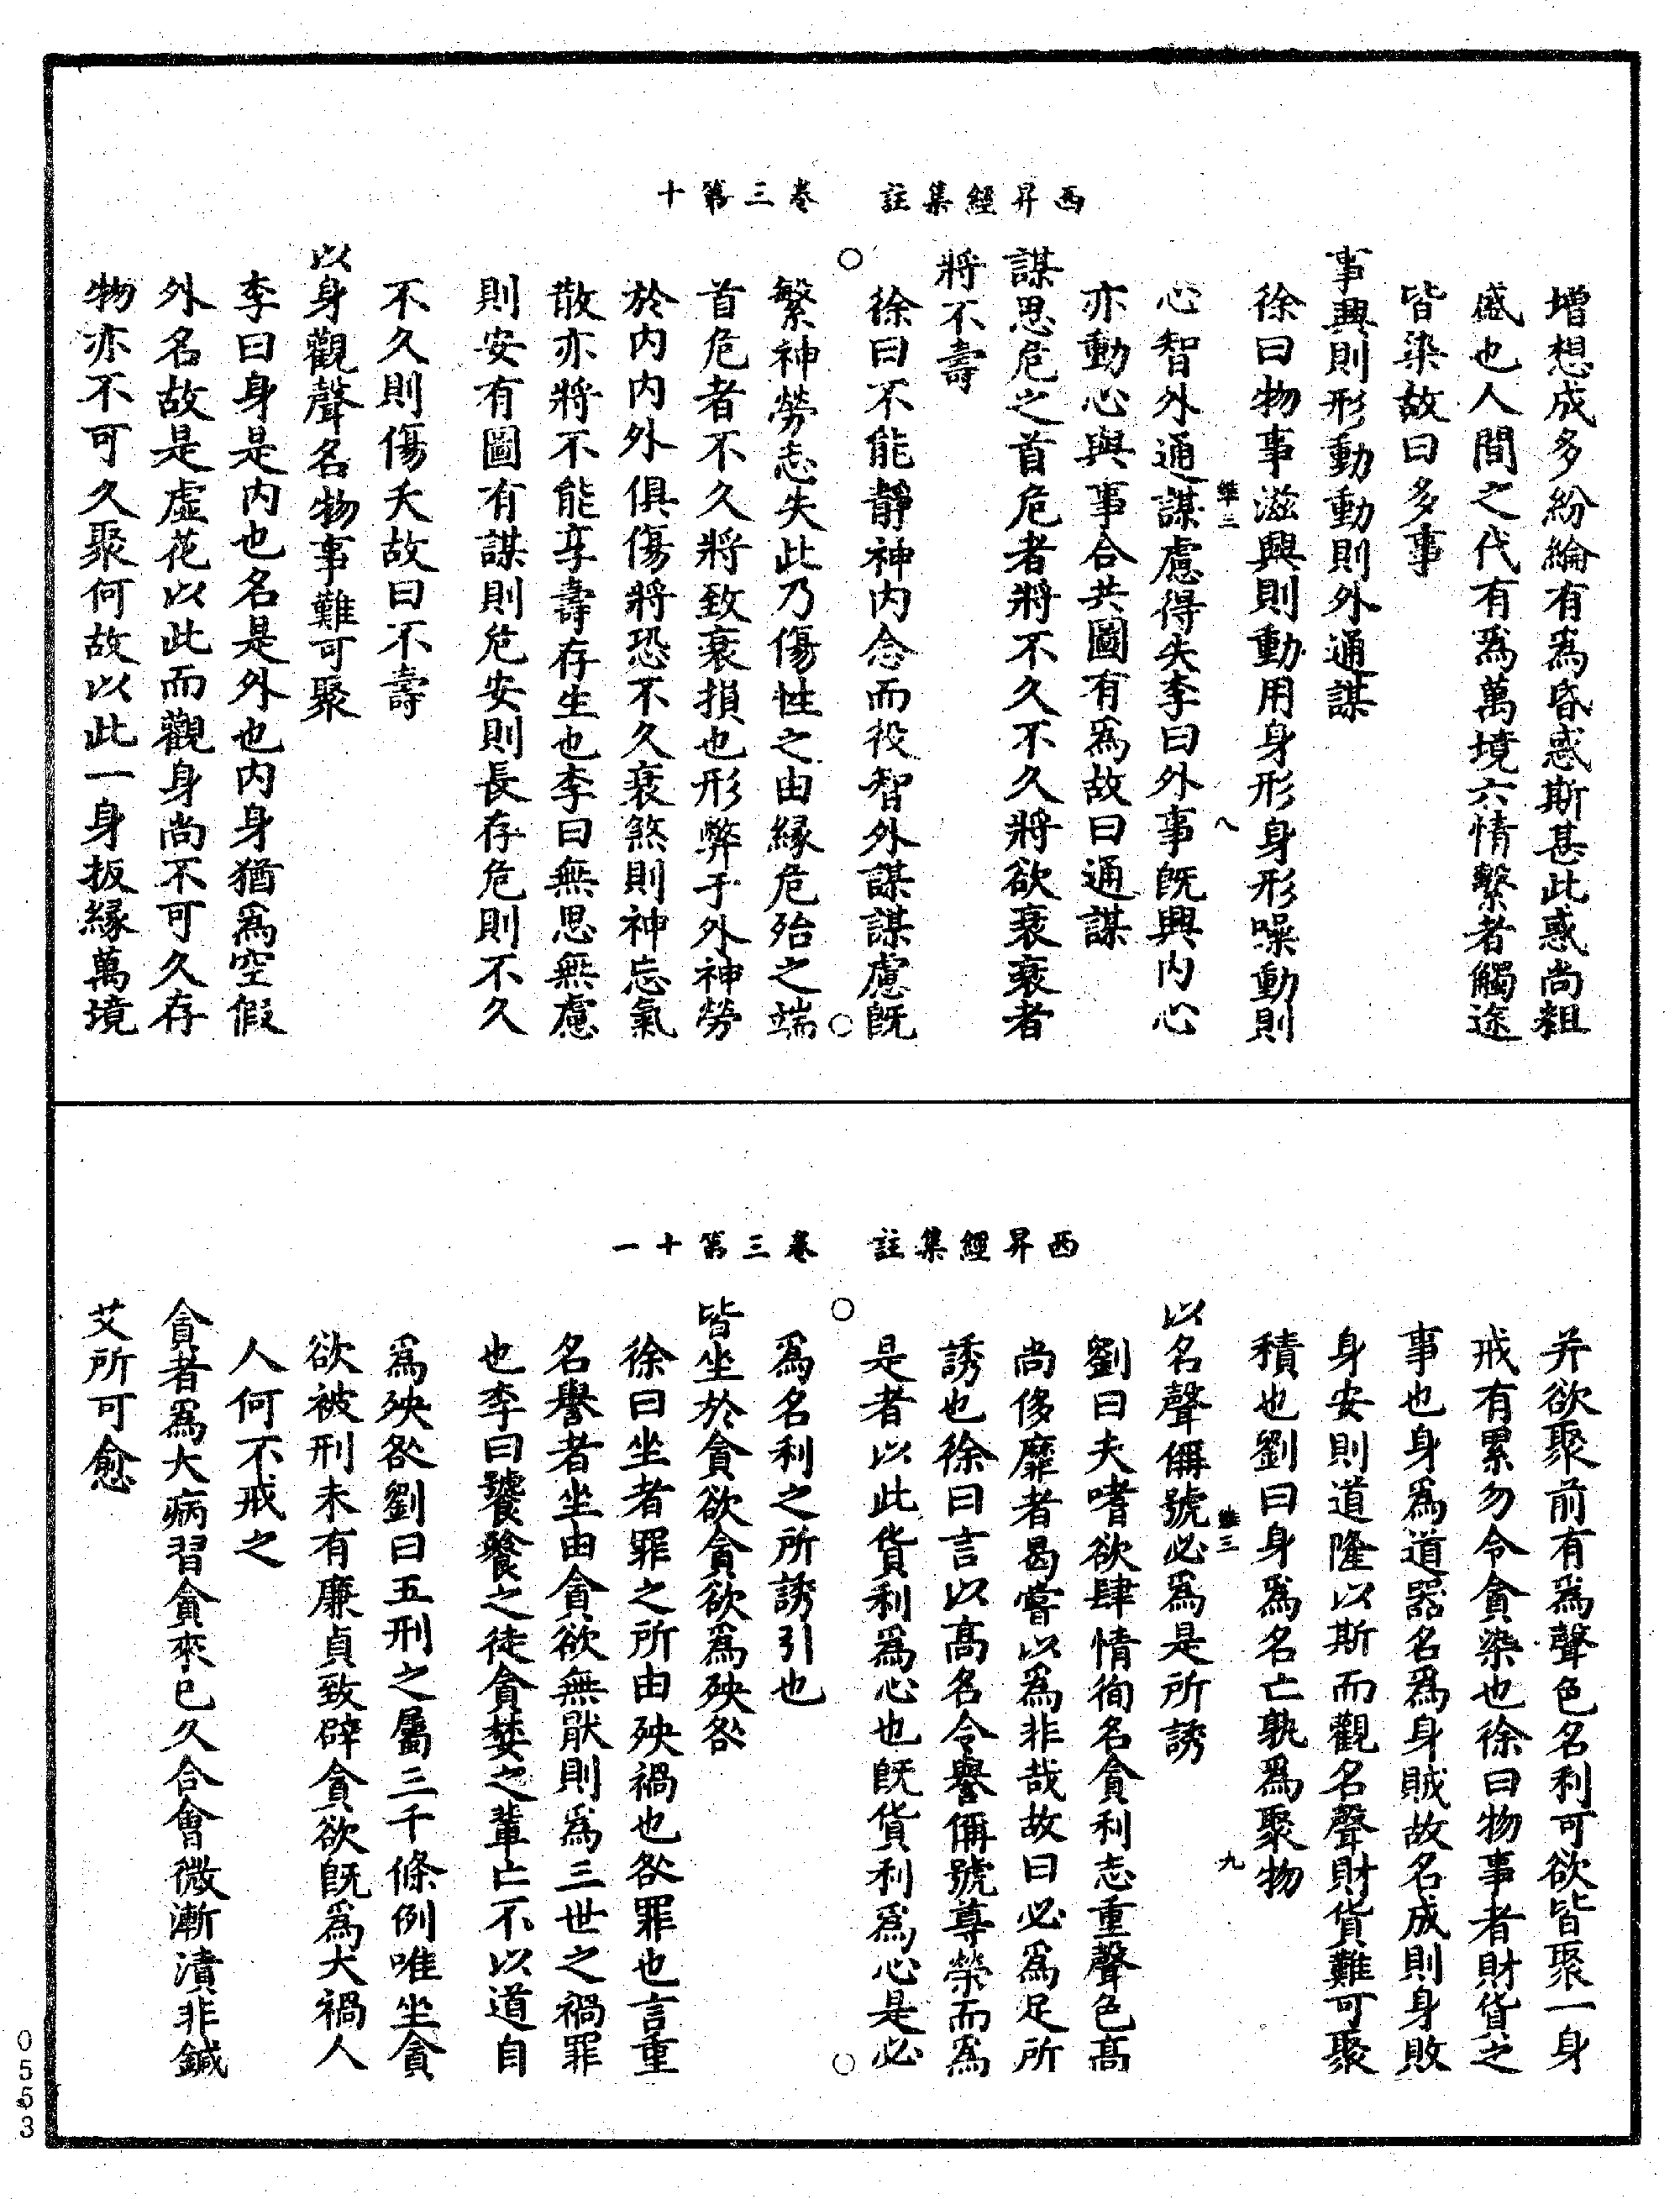 西昇經集註　卷三第十
增想成多紛綸有爲昏惑斯甚此惑尚麤
慼也人間之代有爲萬境六情繫者觸途
皆染故曰多事
事興則形動動則外通謀
徐曰物事滋興則動用身形身形噪動則
維三　八
心智外通謀慮得失李曰外事旣興内心
亦動心與事合共圖有爲故曰通謀
謀思危之首危者將不久不久將欲衰衰者
將不壽
徐曰不能靜神内念而役智外謀謀慮旣
繁神勞志失此乃傷性之由緣危殆之端
首危者不久將致衰損也形弊于外神勞
於内内外俱傷將恐不久衰煞則神忘氣
散亦將不能享壽存生也李曰無思無慮
則安有圖有謀則危安則長存危則不久
不久則傷夭故曰不壽
以身觀聲名物事難可聚
李曰身是内也名是外也内身猶爲空假
外名故是虛花以此而觀身尚不可久存
物亦不可久聚何故以此一身扳緣萬境
西昇經集註　卷三第十一
幷欲聚前有爲聲色名利可欲皆聚一身
戒有累勿令貪染也徐曰物事者財貨之
事也身爲道器名爲身賊故名成則身敗
身安則道隆以斯而觀名聲財貨難可聚
積也劉曰身爲名亡孰爲聚物
維三　九
以名聲儞號必爲是所誘
劉曰夫嗜欲肆情徇名貪利志重聲色高
尚侈靡者曷嘗以爲非哉故曰必爲足所
誘也徐曰言以高名令譽儞號尊榮而爲
是者以此貨利爲心也旣貨利爲心是必
爲名利之所誘引也
皆坐於貪欲貪欲爲殃咎
徐曰坐者罪之所由殃禍也咎罪也言重
名譽者坐由貪欲無猒則爲三世之禍罪
也李曰饕餮之徒貪婪之輩亡不以道自
爲殃咎劉曰五刑之屬三千條例唯坐貪
欲被刑未有廉貞致辟貪欲旣爲大禍人
人何不戒之
貪者爲大病習貪來已久合會微漸漬非鍼
艾所可愈
0553